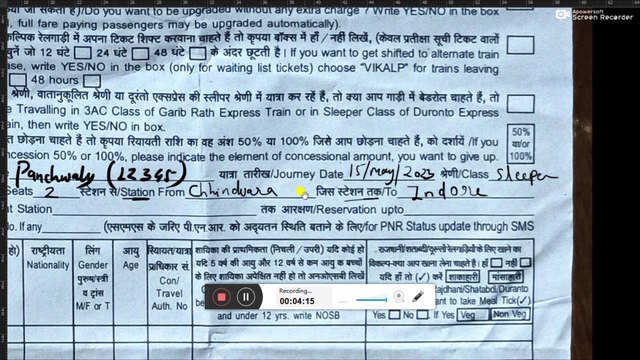 /Do you want to be upgraded without any extra charge ? Write YES/NO in the box
, full fare paying passengers may be upgraded automatically.)
कल्पिक रेलगाड़ी में अपना टिकट शिफ्ट करवाना चाहते हैं तो कृपया बॉक्स में हाँ / नहीं लिखें, (केवल प्रतीक्षा सूची टिकट वालों
चुनें जो 12 घंटे 24 घंटे 48 घंटे के अंदर छूटती है। / If you want to get shifted to alternate train
ase, write YES/NO in the box (only for waiting list tickets) choose "VIKALP" for trains leaving
48 hours
श्रेणी, वातानुकूलित श्रेणी या दूरंतो एक्सप्रेस की स्लीपर श्रेणी में यात्रा कर रहे हैं, तो क्या आप गाड़ी में बेडरोल चाहते हैं, तो
e Travelling in 3AC Class of Garib Rath Express Train or in Sleeper Class of Duronto Express
ain, then write YES/NO in box.
त छोड़ना चाहते हैं तो कृपया रियायती राशि का वह अंश 50% या 100% जिसे आप छोड़ना चाहते हैं, को दर्शायें /If you
oncession 50% or 100%, please indicate the element of concessional amount, you want to give up.
50% या/or 100%
Panchwaly (12345) यात्रा तारीख/Journey Date 15/may/2023 श्रेणी/Class Sleeper
Seats 2 स्टेशन से/Station From Chhindwara जिस स्टेशन तक/To Indore
ut Station तक आरक्षण/Reservation upto
o. If any (एसएमएस के जरिए पी.एन.आर. को अद्यतन स्थिति बताने के लिए/for PNR Status update through SMS
हो) राष्ट्रीयता Nationality लिंग Gender पुरुष/स्त्री व ट्रांस M/F or T आयु Age रियायत/यात्रा प्राधिकार सं. Con/ Travel Auth. No
शायिका की प्राथमिकता (निचली / उपरी) यदि कोई हो
यदि 5 वर्ष की आयु और 12 वर्ष से कम आयु के बच्चों
के लिए शायिका अपेक्षित नहीं हो तो एनओएसबी लिखें
and under 12 yrs. write NOSB
विकल्प-क्या आप खाना लेना चाहते हैं? हाँ नहीं
यदि हाँ तो (✓) करें शाकाहारी मांसाहारी
Rajdhani/Shatabdi/Duranto
want to take Meal Tick(✓)
Yes No If Yes Veg Non Veg
Recording...
00:04:15
Apowersoft
Screen Recorder